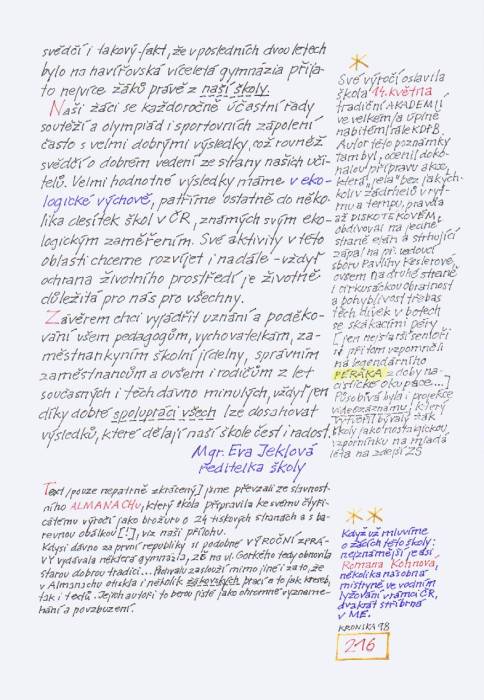 svědčí i takový fakt, že v posledních dvou letech
bylo na havířovská víceletá gymnázia přija-
to nejvíce žáků právě z naší školy.
Naši žáci se každoročně účastní řady
soutěží a olympiád i sportovních zápolení
často s velmi dobrými výsledky, což rovněž
svědčí o dobrém vedení ze strany našich uči-
telů. Velmi hodnotné výsledky máme v eko-
logické výchově, patříme ostatně do něko-
lika desítek škol v ČR, známých svým eko-
logickým zaměřením. Své aktivity v této
oblasti chceme rozvíjet i nadále - vždyť
ochrana životního prostředí je životně
důležitá pro nás pro všechny.
Závěrem chci vyjádřit uznání a poděko-
vání všem pedagogům, vychovatelkám, za-
městnankyním školní jídelny, správním
zaměstnancům a ovšem i rodičům z let
současných i těch dávno minulých, vždyť jen
díky dobré spolupráci všech lze dosahovat
výsledků, které dělají naší škole čest i radost.
Mgr. Eva Jeklová
ředitelka školy
Text [pouze nepatrně zkrácený] jsme převzali ze slavnost-
ního ALMANACHu, který škola připravila ke svému čtyři-
cátému výročí jako brožuru o 24 tiskových stranách a s ba-
revnou obálkou [!], viz naši přílohu.
Kdysi dávno za první republiky si podobné VÝROČNÍ ZPRÁ-
VY vydávala některá gymnázia, ZŠ na ul. Gorkého tedy obnovila
starou dobrou tradici... Pochvalu zaslouží mimo jiné i za to, že
v Almanachu otiskla i několik žákovských prací a to jak kreseb,
tak i textů. Jejich autoři to berou jistě jako ohromné vyzname-
nání a povzbuzení.
*
Své výročí oslavila
škola 14. května
tradiční AKADEMIÍ
ve velkém/a úplně
nabitém/sále KDPB.
Autor této poznámky
tam byl, ocenil doko-
nalou přípravu akce,
která "jela" bez jakých-
koliv zádrhelů v ryt-
mu a tempu, pravda
až DISKOTÉKOVÉM,
obdivoval na jedné
straně elán a strhující
zápal na př. vedoucí
sboru Pavlíny Keslerové,
ovšem na druhé straně
i cirkusáckou obratnost
a pohyblivost třebas
těch dívek v botech
se skákacími péry
[jen nejstarší senioři
si přitom vzpomněli
na legendárního
PÉRÁKA z doby na-
cistické okupace...]
Působivá byla i projekce
videozáznamu, který
vytvořil bývalý žák
školy jako nostalgickou
vzpomínku na mladá
léta na zdejší ZŠ
**
Když už mluvíme
o žácích této školy:
nejznámější je asi
Romana Kohnová,
několikanásobná
mistryně ve vodním
lyžování v rámci ČR,
dvakrát stříbrná
v ME.
KRONIKA 98
216